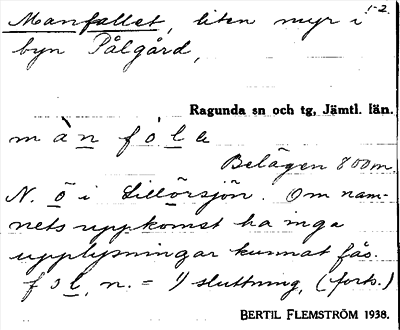 Manfallet, liten myr i 1-2.
byn Pålgård,
Ragunda sn och tg, Jämtl. län.
màn fòle
Belägen 800 m.
N. ö i Lillörsjön. Om nam-
nets uppkomst ha inga
upplysningar kunnat fås.
fɔl, n. = 1) sluttning, (forts.)
BERTIL FLEMSTRÖM 1938.